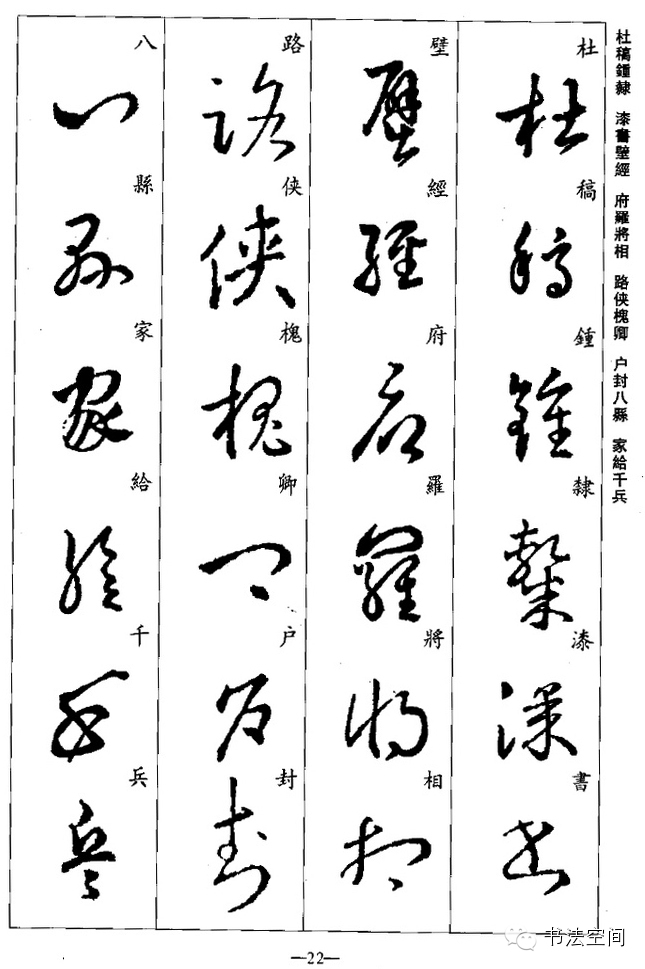 杜稿鍾隸 漆書壁經 府羅將相 路俠槐卿 户封八縣 家給千兵
杜
稿
鍾
隸
漆
書
壁
經
府
羅
將
相
路
俠
槐
卿
户
封
八
縣
家
給
千
兵
—22—
书法空间